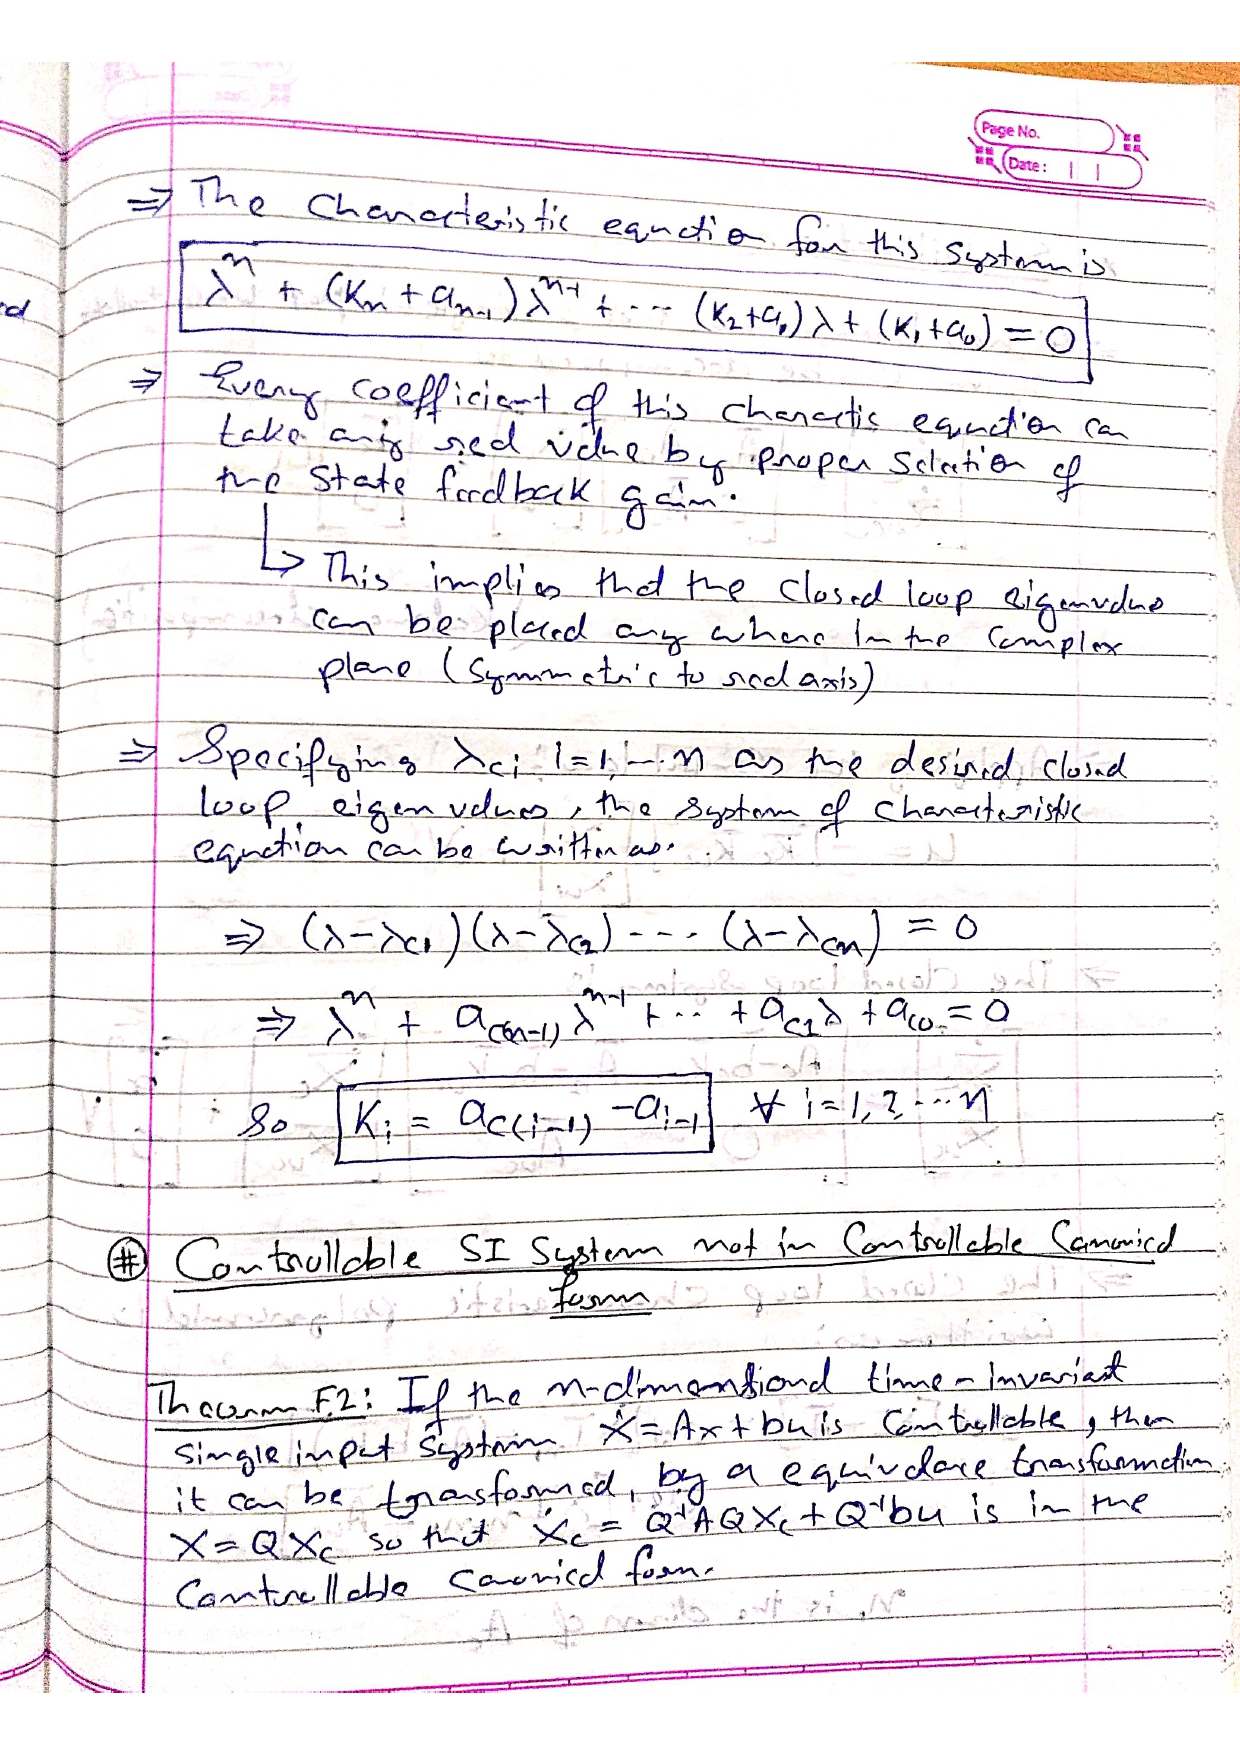 Page No.
Date: | |
⇒ The Characteristic equation for this System is
λⁿ + (Kₙ + aₙ₋₁)λⁿ⁻¹ + ... (K₂+a₁)λ + (K₁+a₀) = 0
ed
⇒ Every coefficient of this charactic equation can
take any real value by proper Selection of
the State feedback gain.
↳ This implies that the Closed loop eigenvalues
can be placed any where In the Complex
plane (Symmetric to real axis)
⇒ Specifying λci i=1, ... n as the desired closed
loop eigen values, the system of Characteristic
equation can be written as.
⇒ (λ-λc1)(λ-λc2) --- (λ-λcn) = 0
⇒ λⁿ + ac(n-1) λⁿ⁻¹ + ... + ac1λ + ac0 = 0
So Ki = ac(i-1) - ai-1 ∀ i=1,2,...n
# Controllable SI System not in Controllable Canonical
form
Theorem F.2: If the n-dimensional time-invariant
single input System Ẋ = Ax + bu is Controllable, then
it can be transformed, by a equivalance transformation
X = QXc so that Ẋc = Q⁻¹AQXc + Q⁻¹bu is in the
Controllable Canonical form.